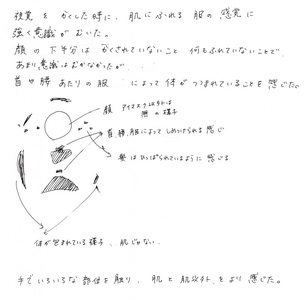 視覚を かくした時に、肌にふれる 服の 感覚に
強く意識が むいた。
顔の 下半分は かくされていないこと 何もふれていないことで、
あまり意識はむかなかったが、
首や腰 あたりの 服 によって 体が つつまれていることを 感じた。
顔 アイマスク以外は
無の様子
首 腰 服によって しめつけられる 感じ
ひっぱられているように 感じる
体が包まれている様子、肌じゃない、
手で いろいろな 部位を 触り、肌と 肌以外を より 感じた。